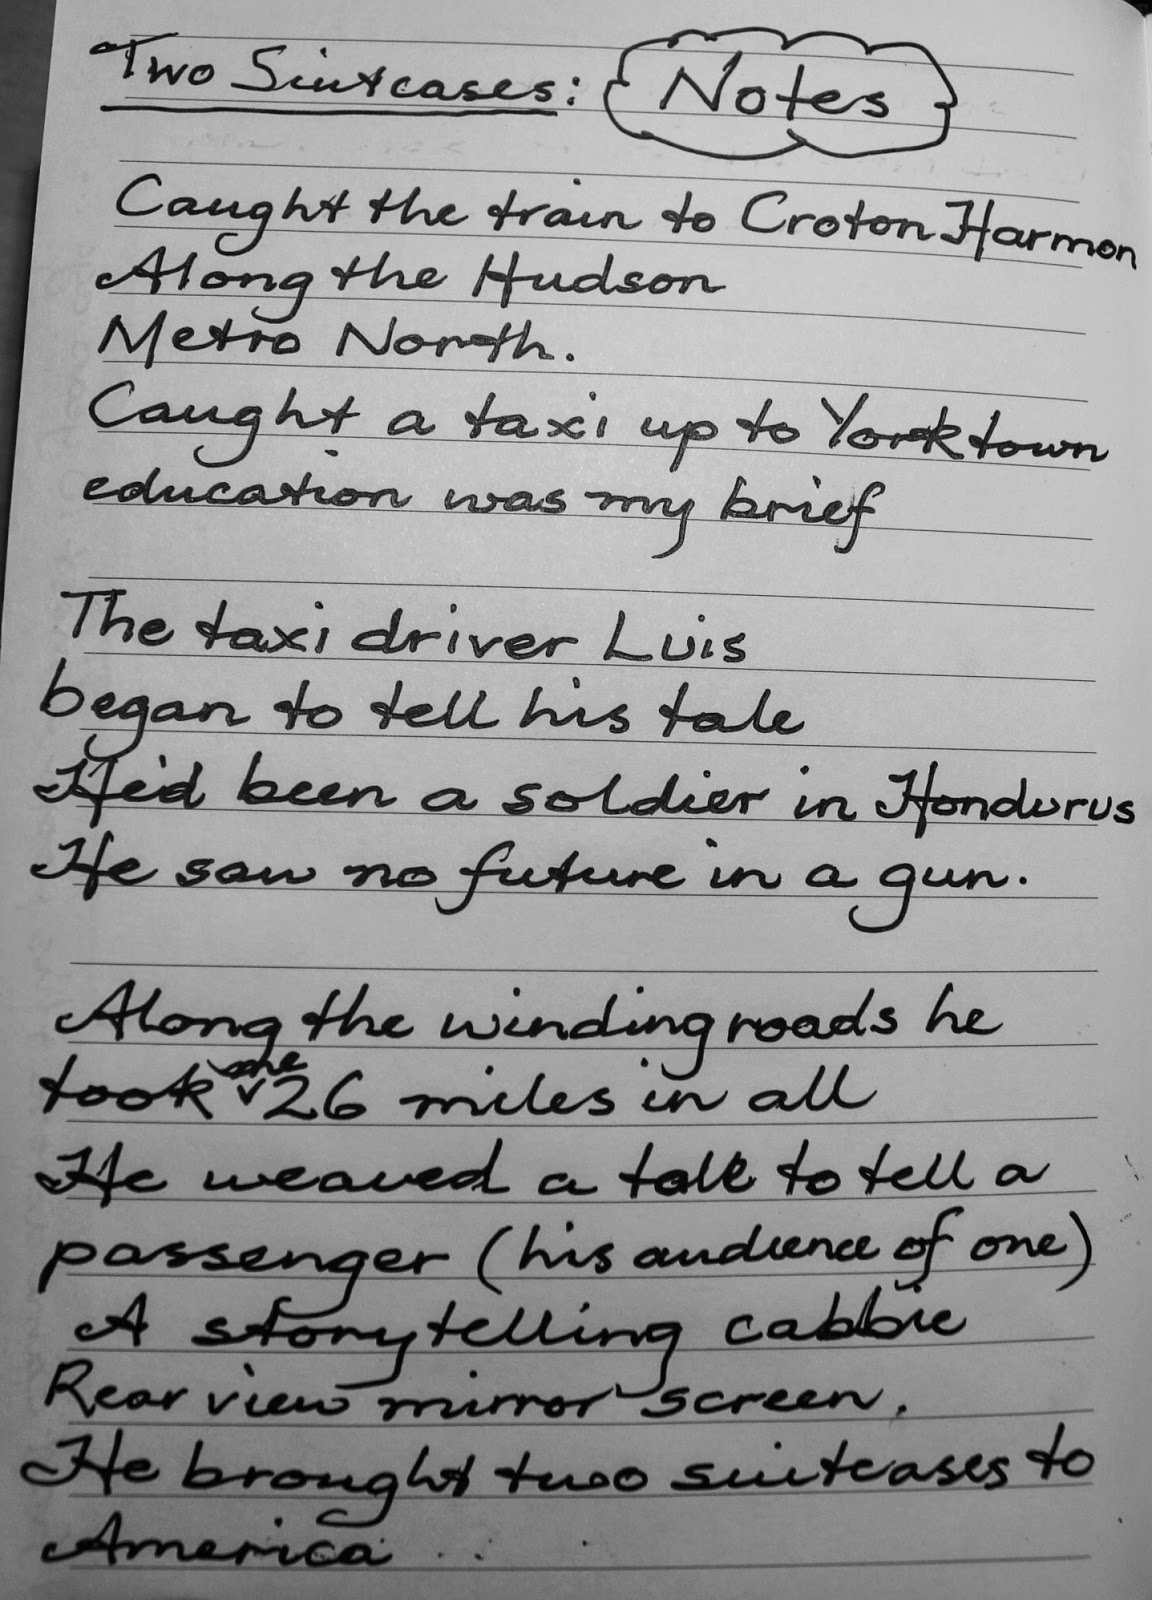 Two Suitcases: Notes
Caught the train to Croton Harmon
Along the Hudson
Metro North.
Caught a taxi up to Yorktown
education was my brief
The taxi driver Luis
began to tell his tale
He'd been a soldier in Hondurus
He saw no future in a gun.
Along the winding roads he
took me 26 miles in all
He weaved a tale to tell a
passenger (his audience of one)
A storytelling cabbie
Rear view mirror screen.
He brought two suitcases to
America . . .